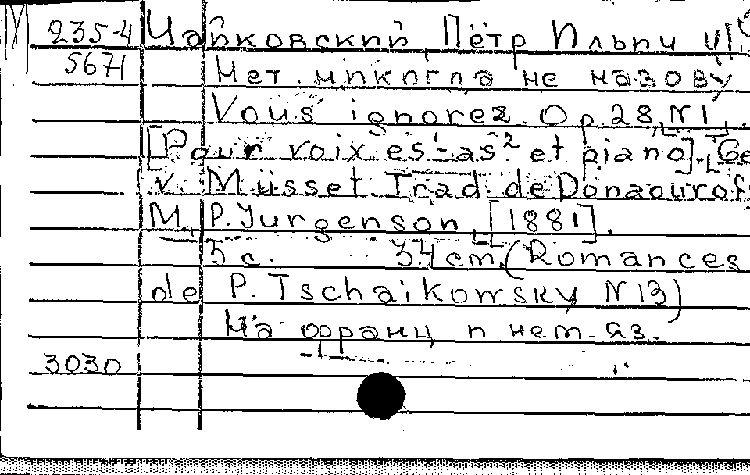 235-4 Чайковский, Пётр Ильич
567-1 Нет. никогда не назову
Vous ignorez. Op. 28, N 1.
[Pour voix es¹-as² et piano].
v. Müsset. Trad. de Donaourof
M., P. Jurgenson, [1881].
5 c. 34 cm. (Romances
de P. Tschaikowsky N 13)
На франц. и нем. яз.
3030